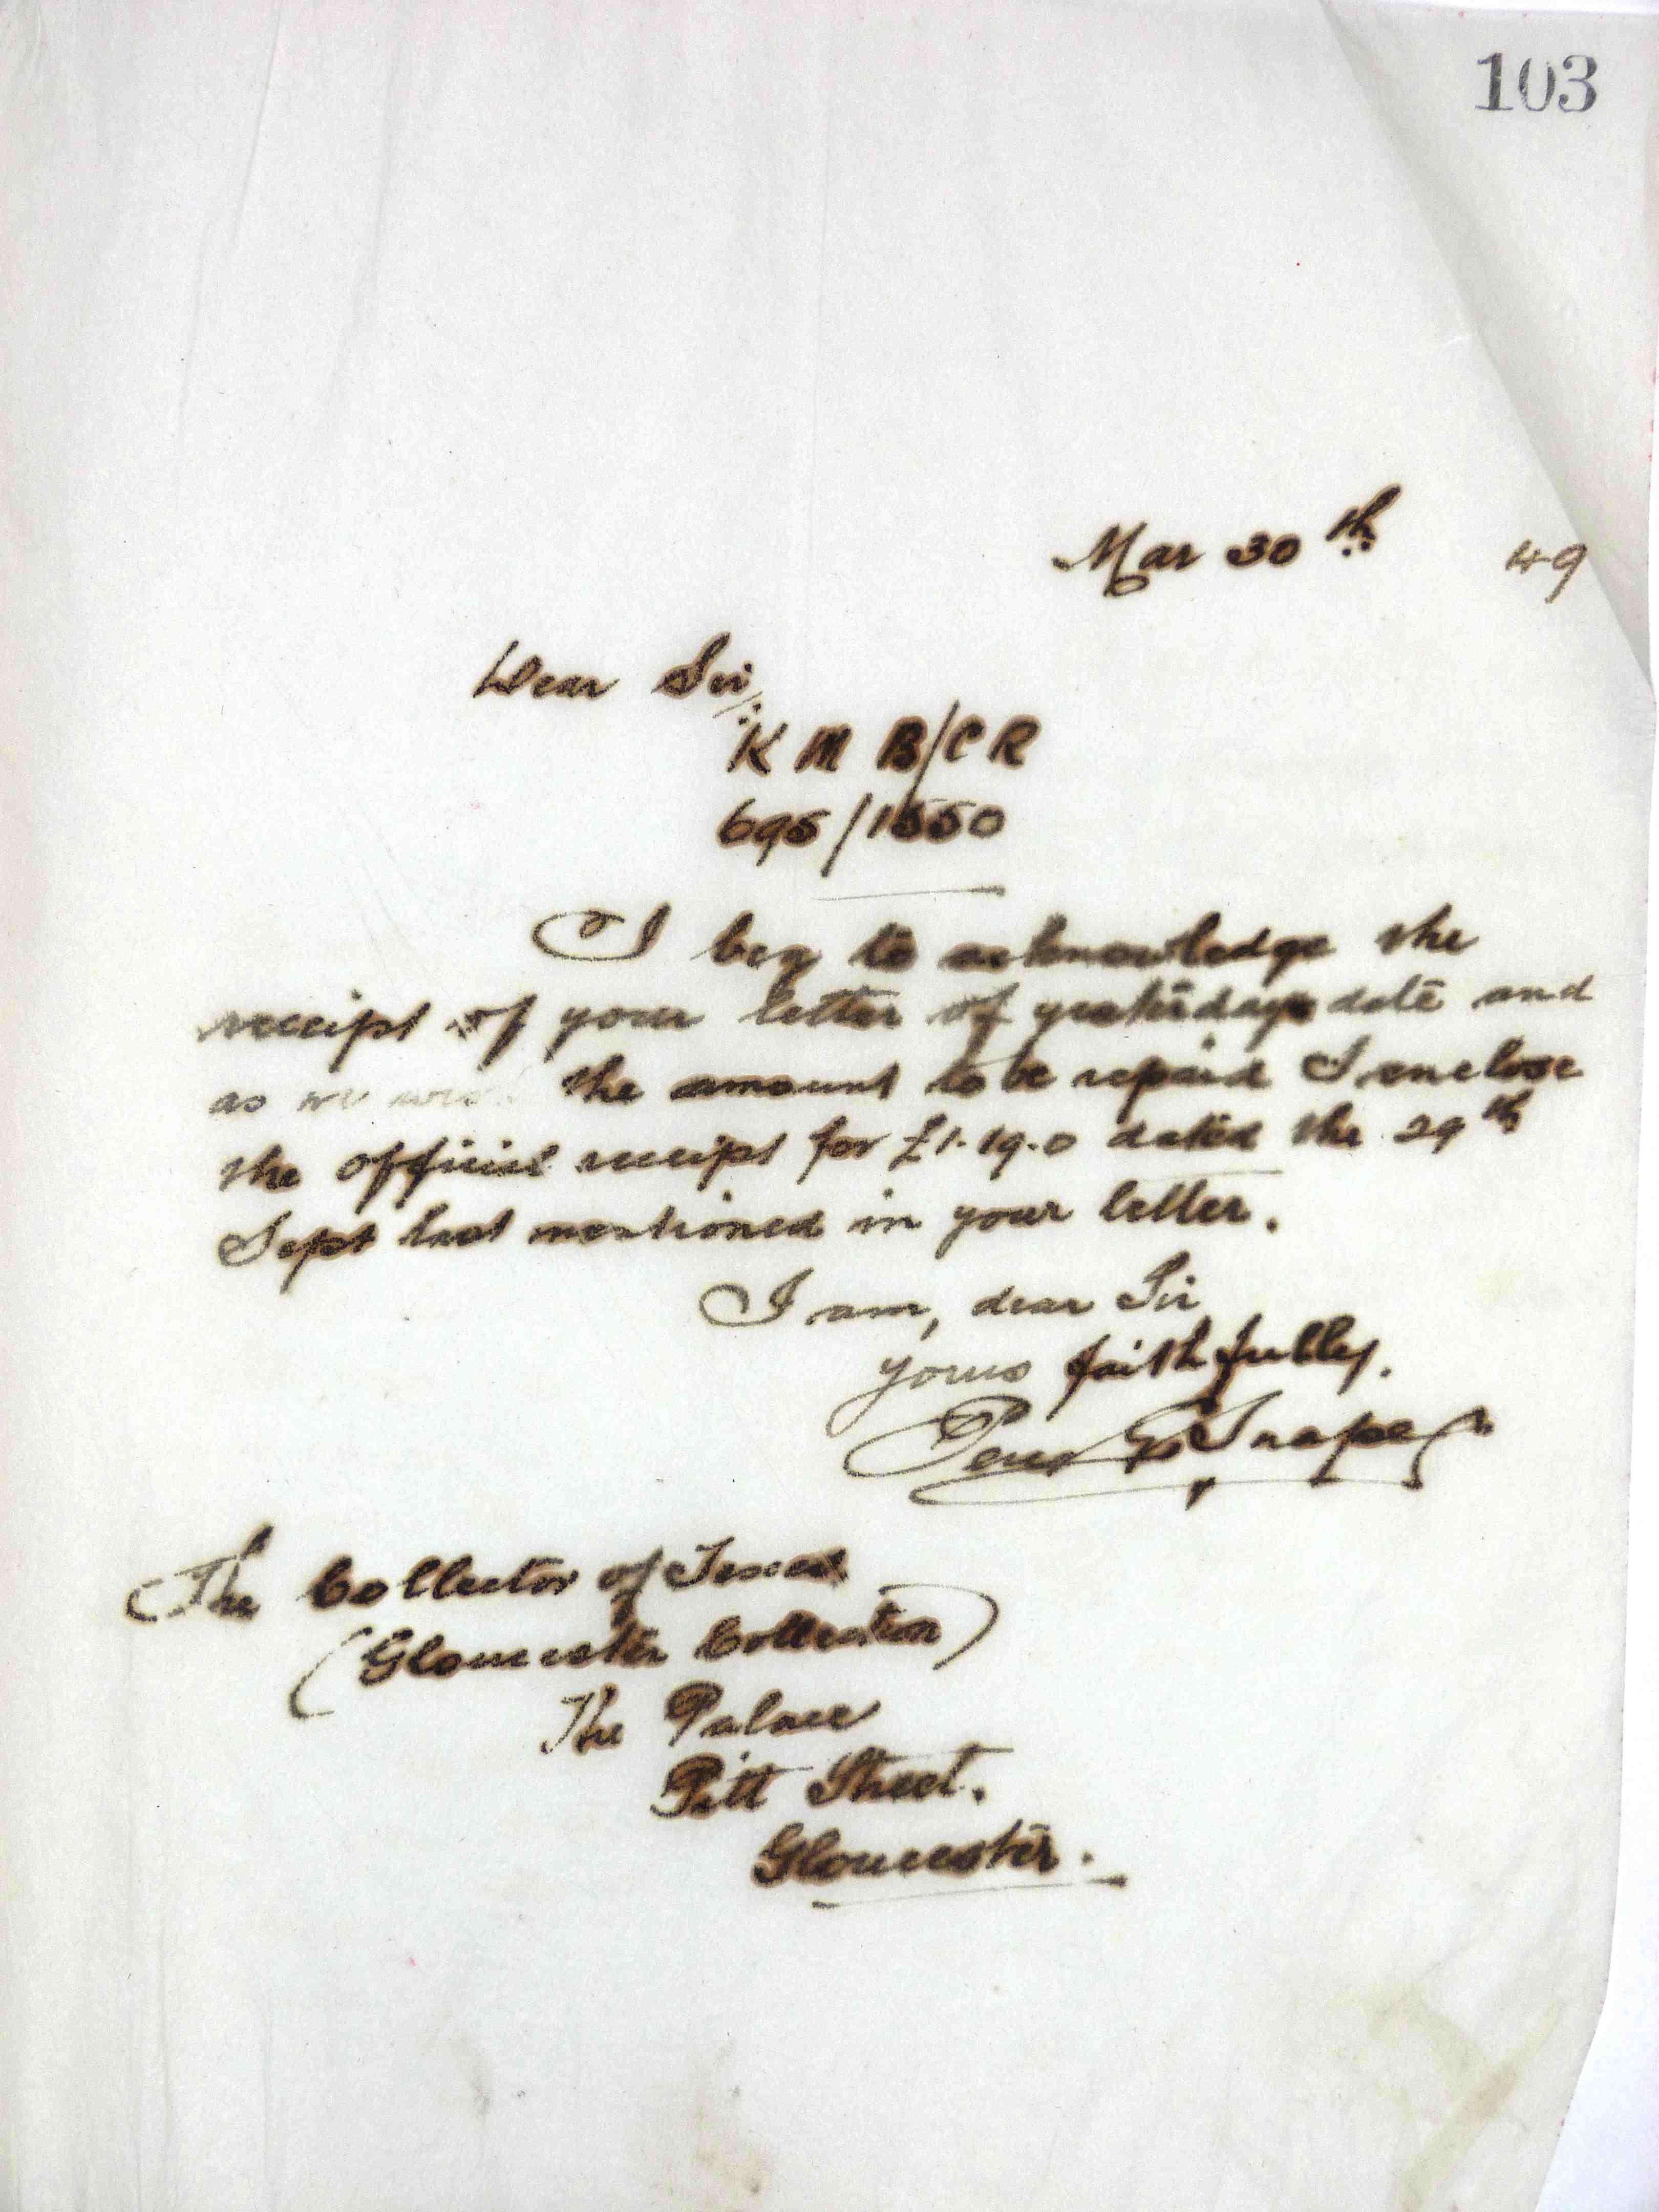 103
Mar 30th 49
Dear Sir,
K M B/C R
695/1550
I beg to acknowledge the
receipt of your letter of yesterdays date and
as we the amount to be repaid I enclose
the official receipt for £1.19.0 dated the 29th
Sept last mentioned in your letter.
I am, dear Sir
yours faithfully.
The Collector of Taxes
(Gloucester Collection)
The Palace
Pitt Street.
Gloucester.